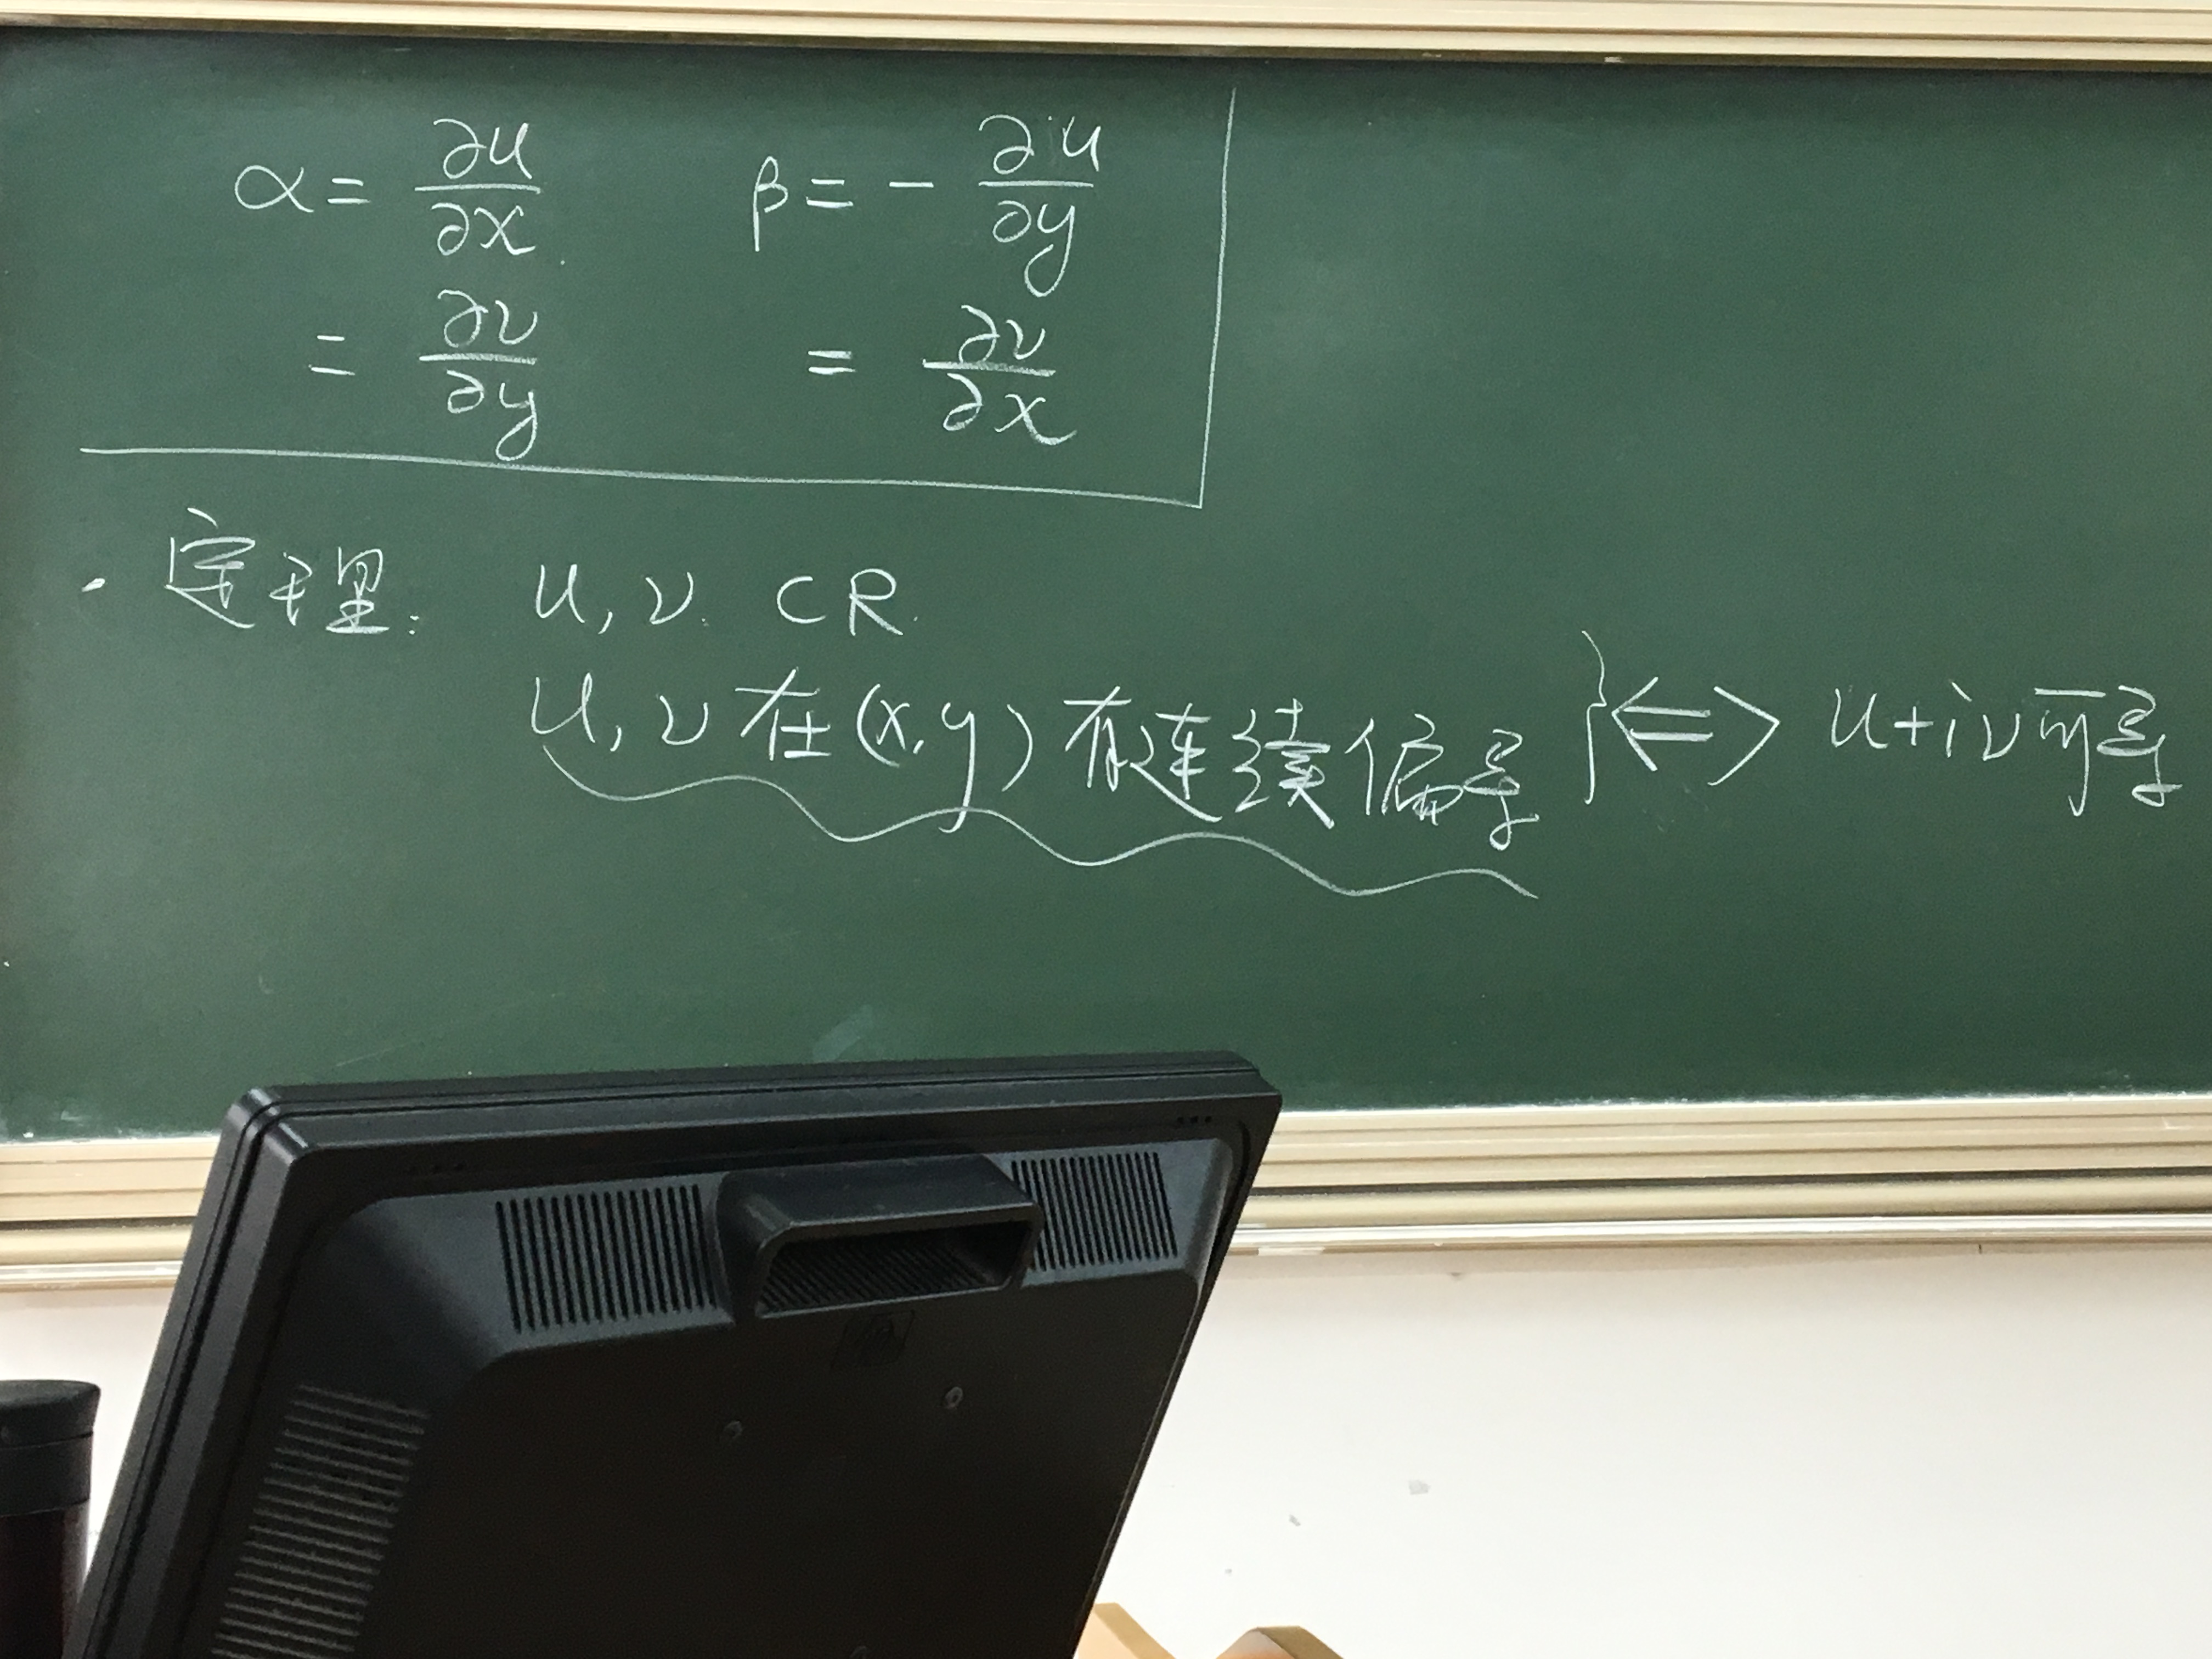 α = ∂u/∂x β = - ∂u/∂y
= ∂v/∂y = ∂v/∂x
· 定理: u, v. CR.
u, v 在(x,y)有连续偏导 } <=> u+iv可导